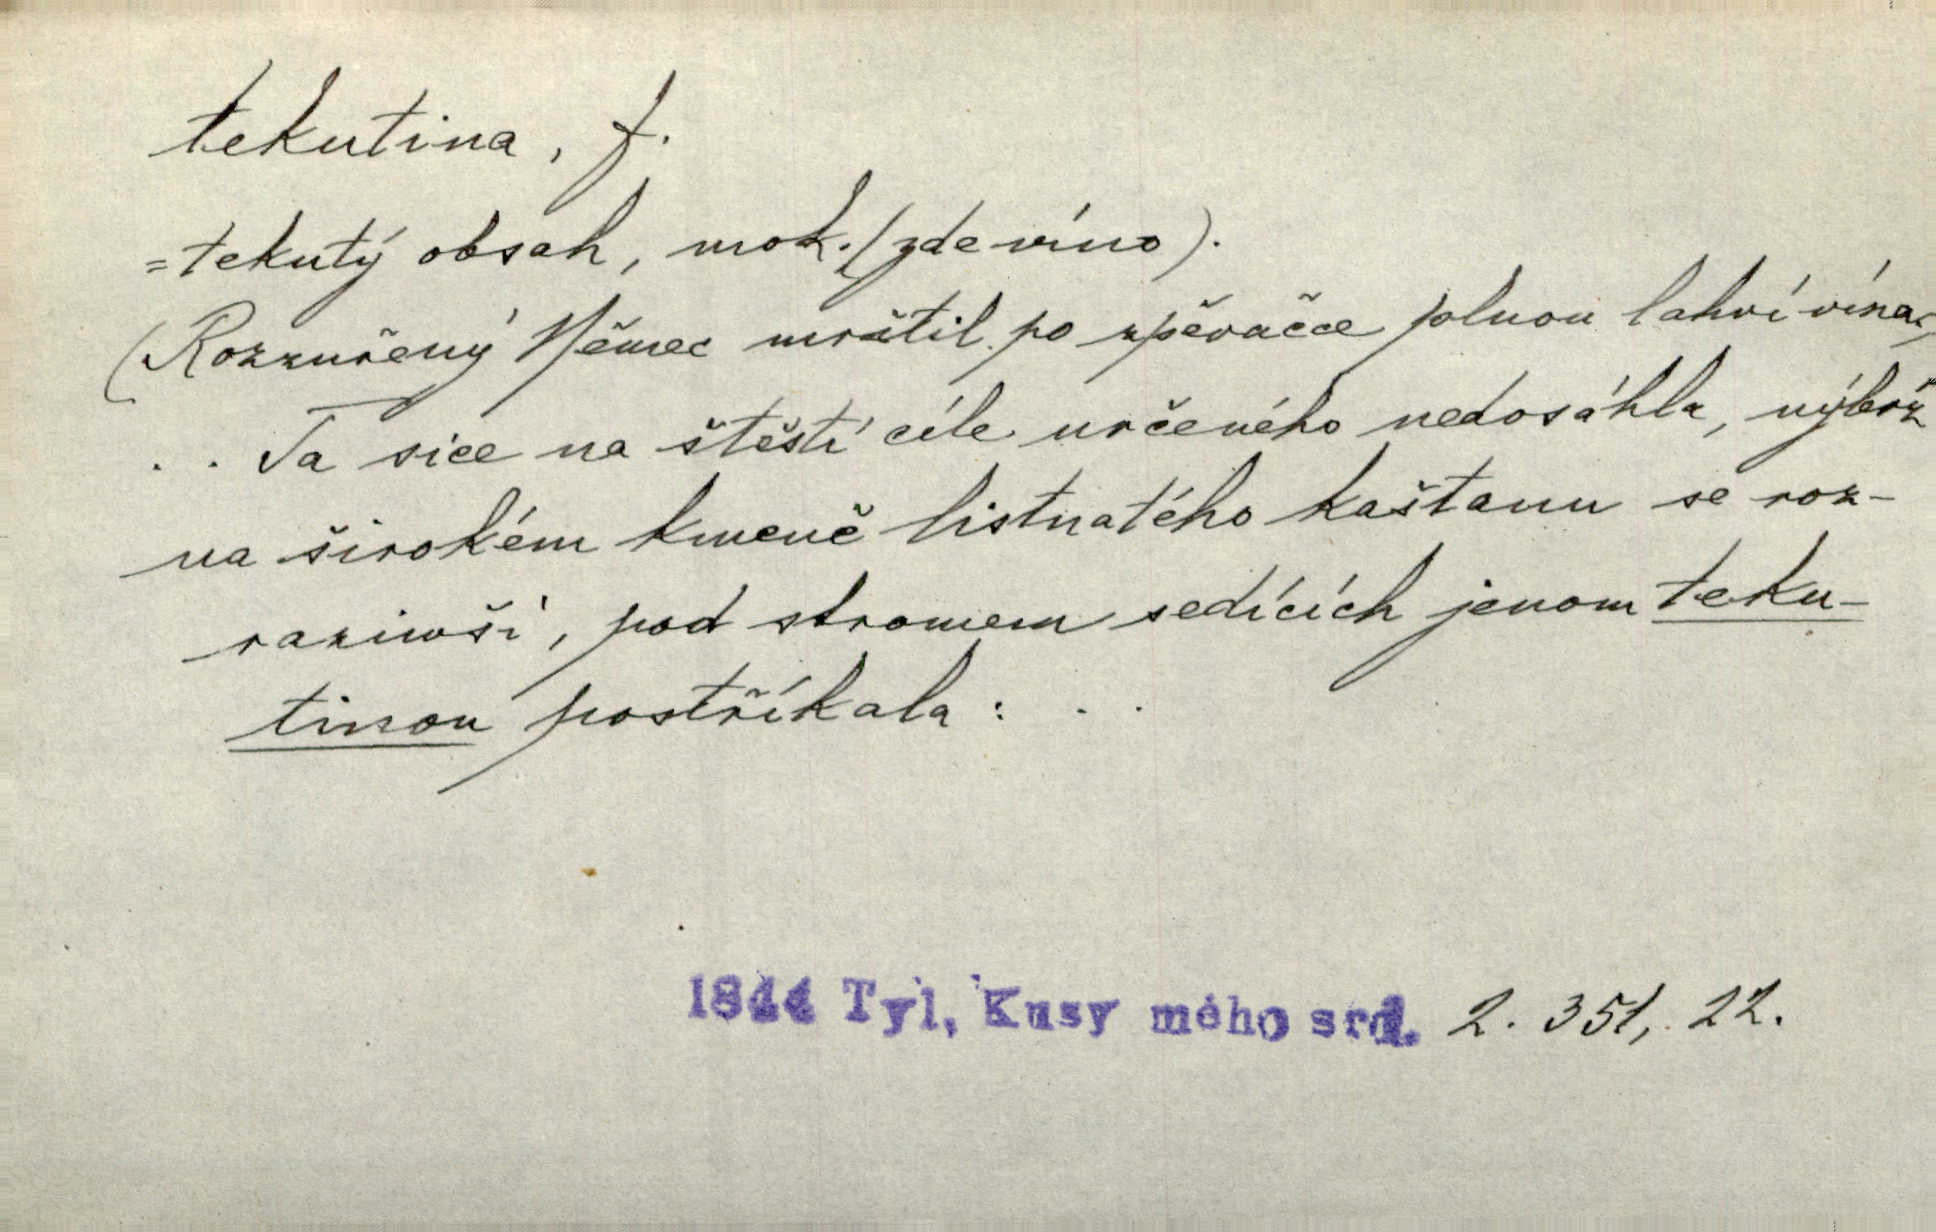 tekutina, f.
=tekutý obsah, mok. (zde víno).
(Rozzuřený Němec mrštil po zpěvačce plnou lahví vína,)
. . Ta sice na štěstí cíle určeného nedosáhla, nýbrž
na širokém kmeně listnatého kaštanu se roz-
raziwši, pod stromem sedících jenom teku-
tinou postříkala: . .
1844 Tyl, Kusy mého srd. 2. 351, 22.